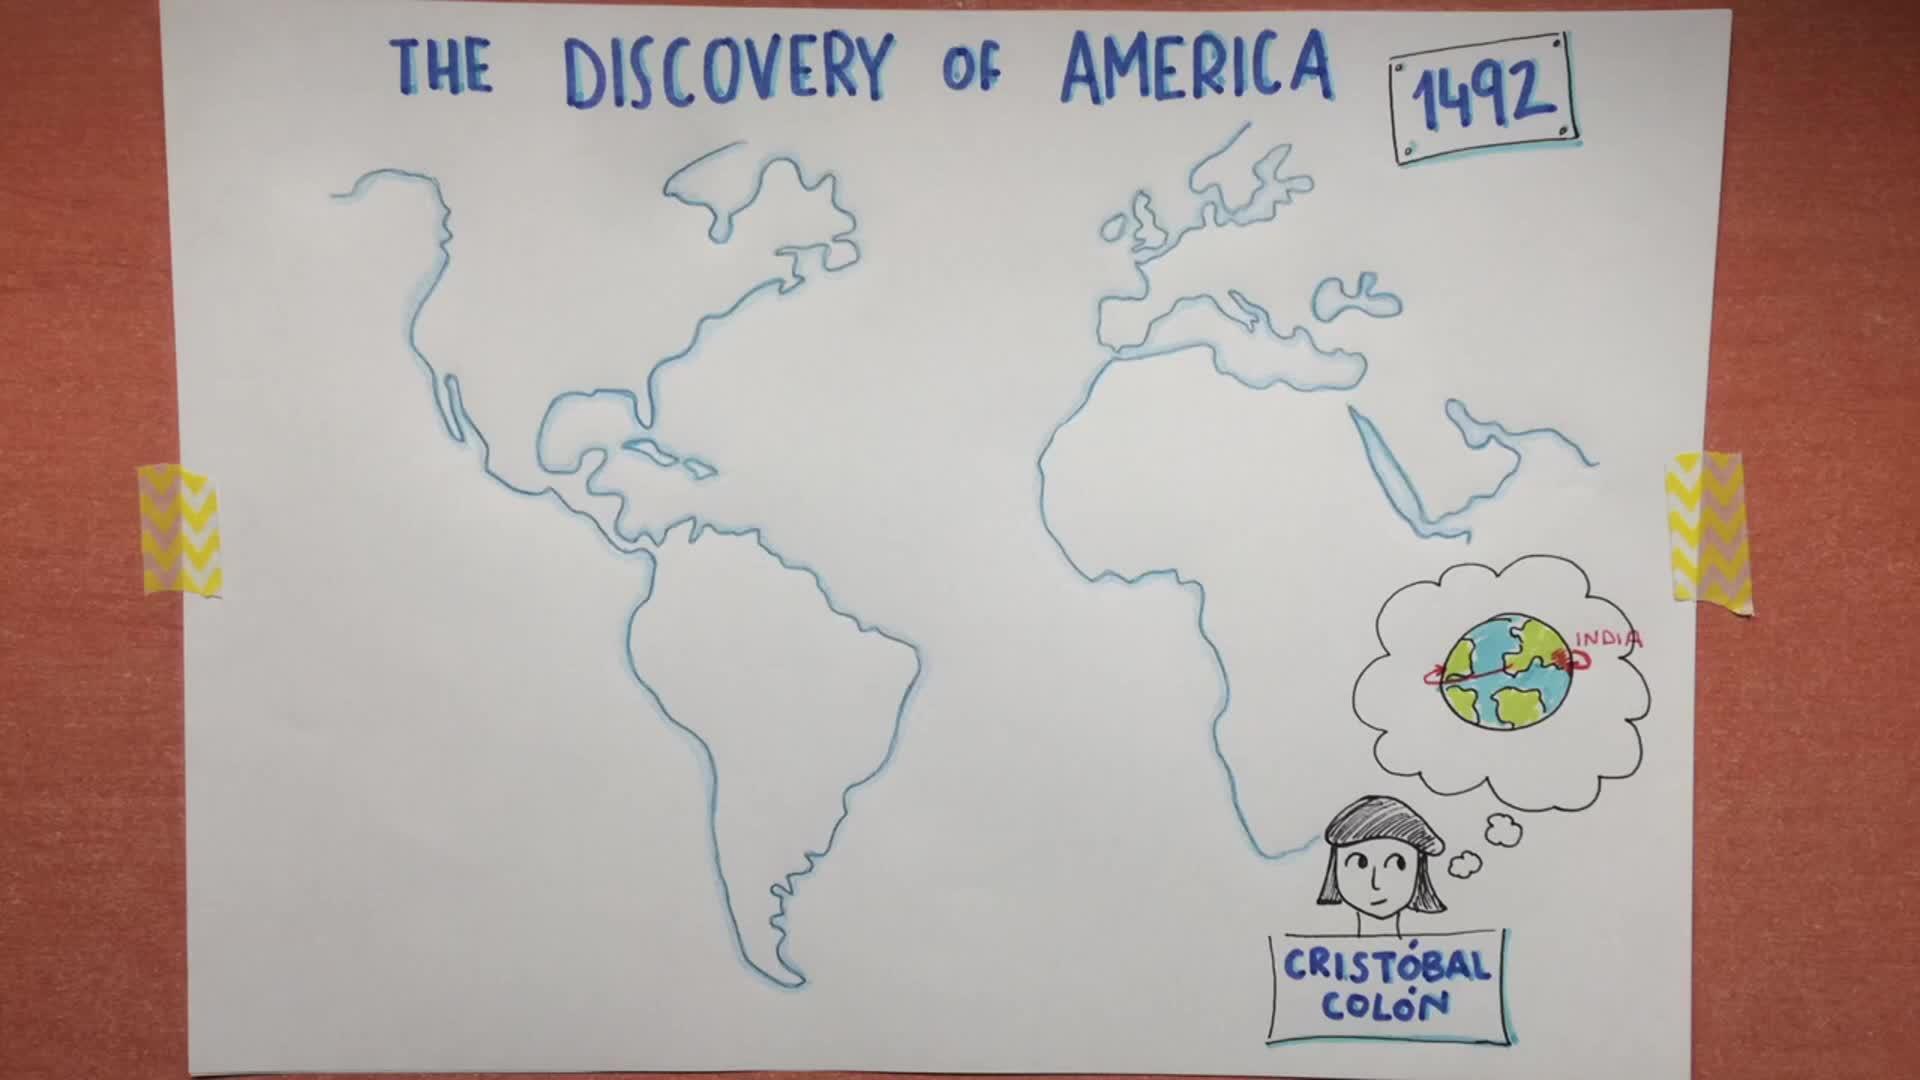 THE DISCOVERY OF AMERICA
1492
INDIA
CRISTÓBAL
COLÓN